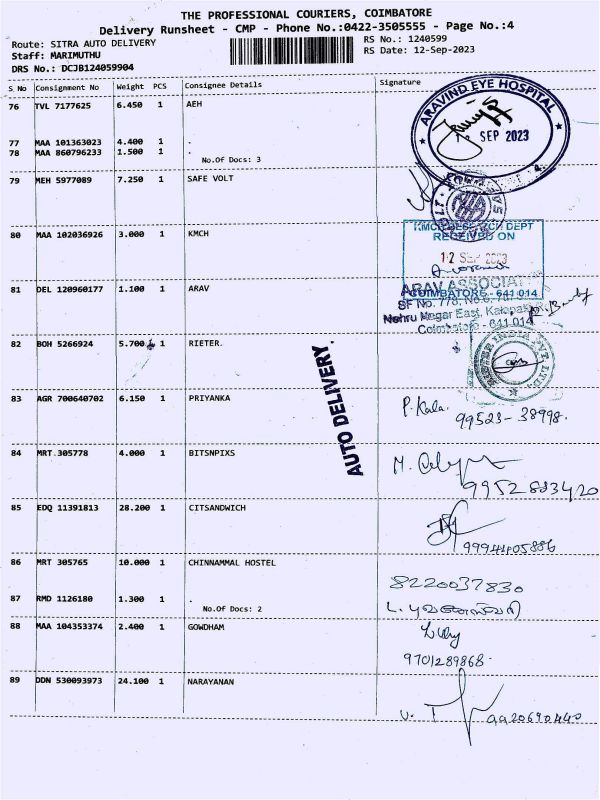 THE PROFESSIONAL COURIERS, COIMBATORE
Delivery Runsheet - CMP - Phone No.:0422-3505555 - Page No.:4
Route: SITRA AUTO DELIVERY RS No.: 1240599
Staff: MARIMUTHU RS Date: 12-Sep-2023
DRS No.: DCJB124059904
S No Consignment No Weight PCS Consignee Details Signature
76 TVL 7177625 6.450 1 AEH
ARAVIND EYE HOSPITAL
SEP 2023
77 MAA 101363023 4.400 1 .
78 MAA 860796233 1.500 1 .
No.Of Docs: 3
79 MEH 5977089 7.250 1 SAFE VOLT
KMCH RESEARCH DEPT
RECEIVED ON
80 MAA 102036926 3.000 1 KMCH
12 SEP 2023
81 DEL 120960177 1.100 1 ARAV
ARAV ASSOCIAT
COIMBATORE - 641 014
SF No. 778, No.6,
Nehru Nagar East, Kalapatti
Coimbatore - 641 014
82 BOH 5266924 5.700 1 RIETER.
RIETER INDIA PVT. LTD.
AUTO DELIVERY.
83 AGR 700640702 6.150 1 PRIYANKA
P. Kala.
99523-38998.
84 MRT 305778 4.000 1 BITSNPIXS
9952883420
85 EDQ 11391813 28.200 1 CITSANDWICH
9994405886
86 MRT 305765 10.000 1 CHINNAMMAL HOSTEL
8220037830
87 RMD 1126180 1.300 1 .
No.Of Docs: 2
88 MAA 104353374 2.400 1 GOWDHAM
9701289868.
89 DDN 530093973 24.100 1 NARAYANAN
9920690440